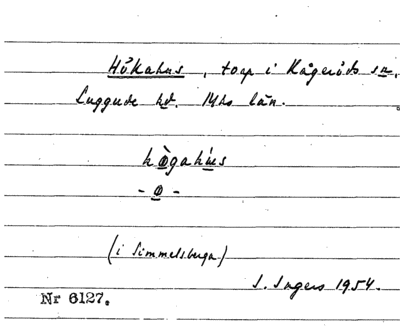 Hökahus, torp i Kågeröds sn,
Luggude hd. Mhs län.
hògahùs
- ø -
(i Simmelsberga)
S. Ingers 1954.
Nr 6127.